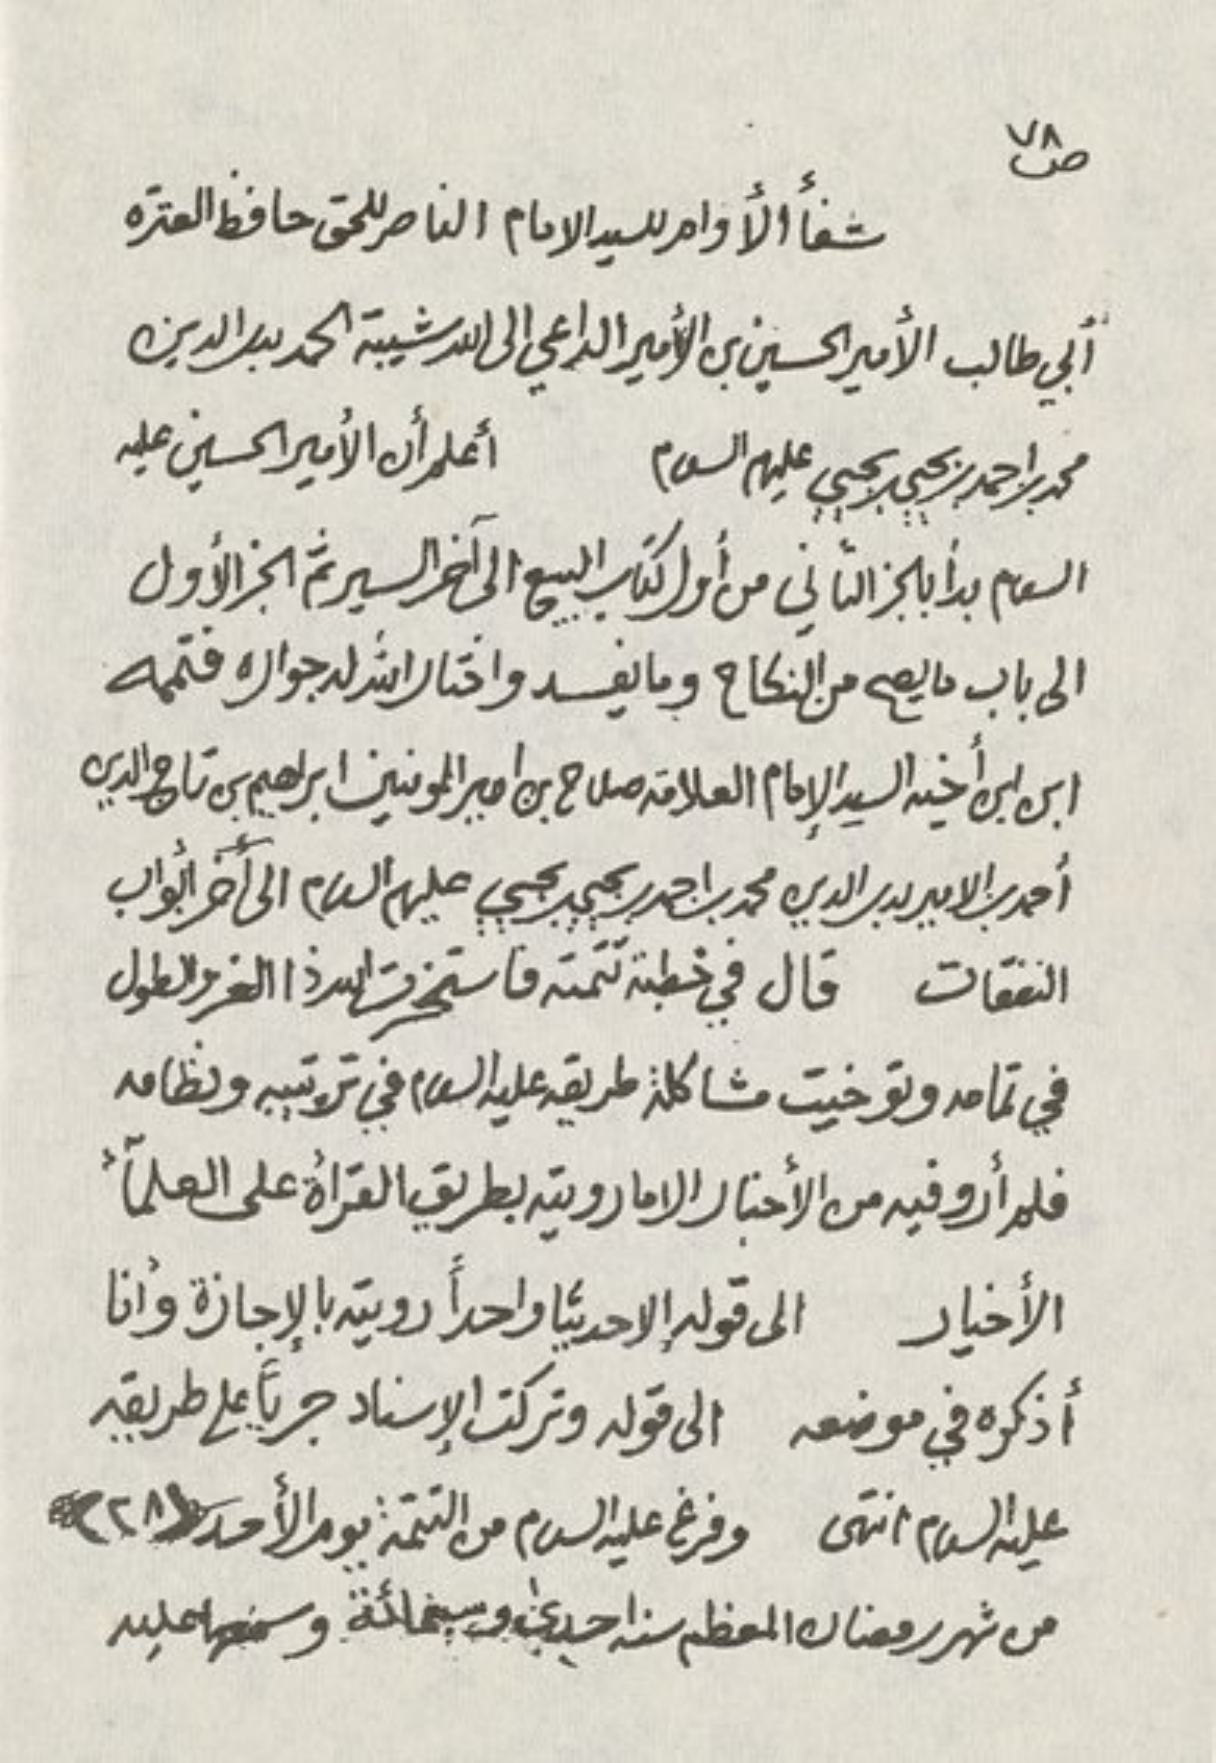 ص ٧٨
شفأ الأوامر للسيد الامام الناصر للحق حافظ العترة
أبي طالب الأمير الحسين بن الأمير الداعي الى الله شيبة الحمد بدر الدين
محمد بن احمد بن يحيى بن يحيى عليهم السلام أعلم أن الأمير الحسين عليه
السلام بدأ بالجز الثاني من أول كتاب البيع الى آخر السير ثم الجز الأول
الى باب ما يصح من النكاح وما يفسد واختار الله له جواره فتممه
ابن ابن أخيه السيد الإمام العلامة صلاح بن امير المومنين ابراهيم بن تاج الدين
أحمد بن الامير بدر الدين محمد بن احمد بن يحيى بن يحيى عليهم السلام الى آخر أبواب
النفقات قال في خطبة تتمته فاستخرت الله ذا العز والطول
في تمامه وتوخيت مشاكلة طريقه عليه السلام في ترتيبه ونظامه
فلم أرو فيه من الأخبار الا ما رويته بطريق القرأة على العلمآء
الأخيار الى قوله إلا حديثا واحداً رويته بالإجازة وأنا
أذكره في موضعه الى قوله وتركت الإسناد جرياً على طريقه
عليه السلام انتهى وفرغ عليه السلام من التتمة يوم الأحد (٢٨)
من شهر رمضان المعظم سنة احدى وسبعمائة وسمعها عليه